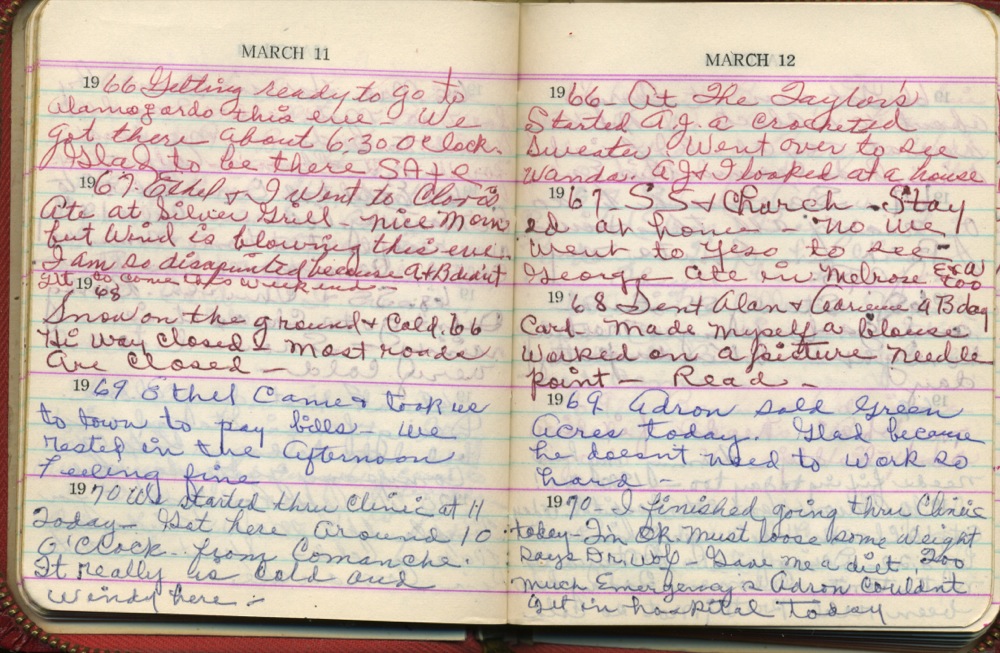 MARCH 11
1966 Getting ready to go to
Alamogordo this eve We
got there about 6:30 O clock.
Glad to be there Safe
1967. Ethel & I went to Clovis
Ate at Silver Grill - nice Morn
but Wind is blowing this eve.
I am so disapunted because A & B didn't
get to come this weekend -
1968
Snow on the ground & Cold. 66
Hi way closed - most roads
Are Closed -
1969 Ethel Came & took us
to town to pay bills - we
rested in the Afternoon
Feeling fine
1970 We started thru Clinic at 11
Today - Got here around 10
O'Clock - from Comanche.
It really is Cold and
Windy here -
MARCH 12
1966 - At The Taylor's
Started A.J. a Crocheted
Sweater Went over to see
Wanda. AJ & I looked at a house
1967 S S & Church - Stay
ed at home - no we
went to Yeso to see
George Ate in Melrose
too
1968 Sent Alan & a Bday
Card. Made myself a blouse
Worked on a picture needle
point - Read -
1969 Adron sold Green
Acres today. Glad because
he doesn't need to work so
hard -
1970 - I finished going thru Clinic
today - I'm OK Must loose some weight
says Dr. - Gave me a diet. Too
much Emergency's Adron Couldn't
get in hospital today